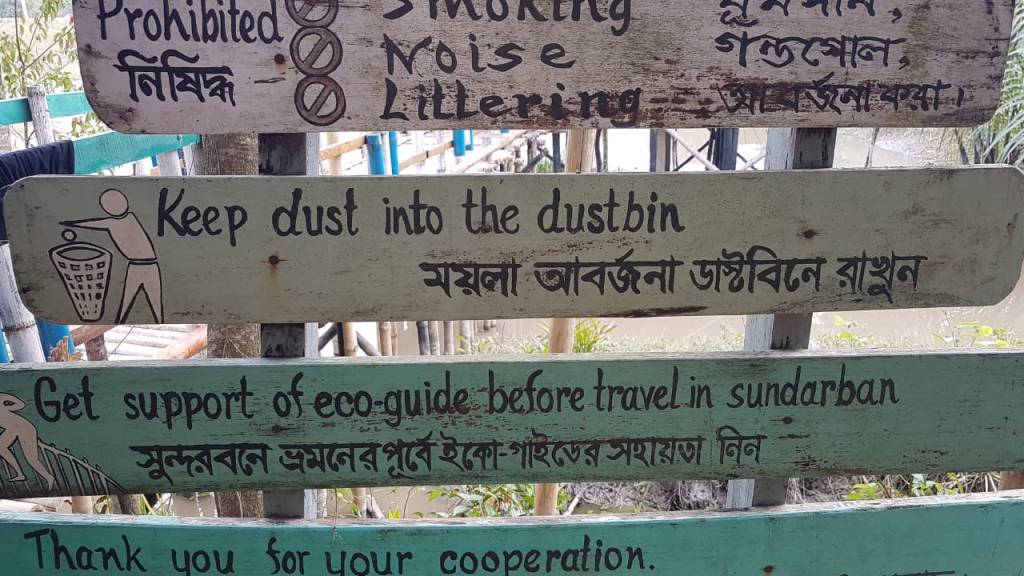 Prohibited Smoking ধূমপান,
নিষিদ্ধ Noise গন্ডগোল,
Littering আবর্জনা করা।
Keep dust into the dustbin
ময়লা আবর্জনা ডাস্টবিনে রাখুন
Get support of eco-guide before travel in sundarban
সুন্দরবনে ভ্রমনের পূর্বে ইকো-গাইডের সহায়তা নিন
Thank you for your cooperation.